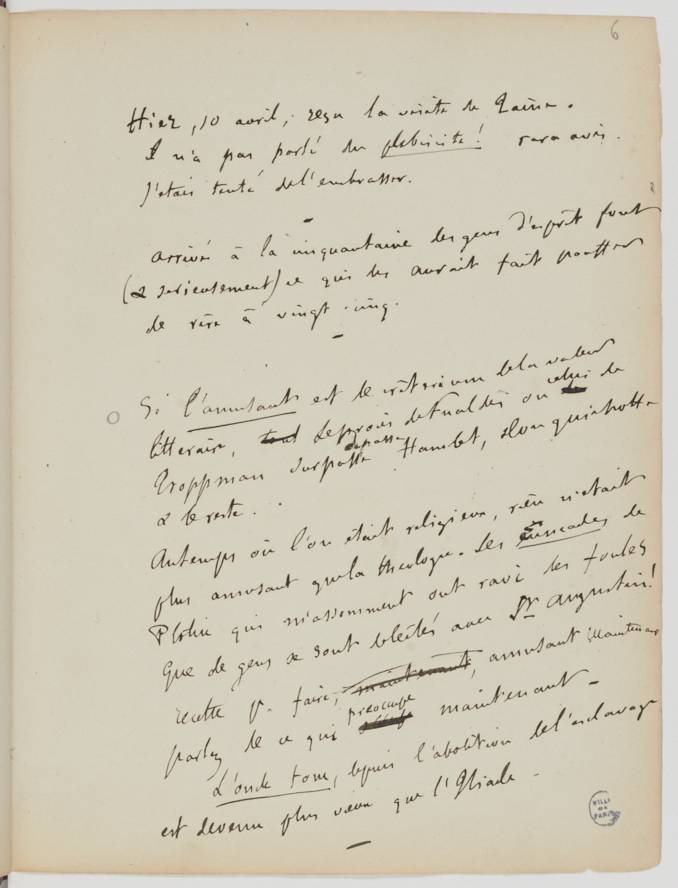 6
Hier, 10 avril, reçu la visite de Taine.
Il n'a pas parlé du plébiscite! rara avis.
J'étais tenté de l'embrasser.
arrivés à la cinquantaine les gens d'esprit font
(& serieusement) ce qui les aurait fait pouffer
de rire à vingt-cinq.
Si l'amusant est le criterium de la valeur
litteraire, tout le procès de Fualdès ou celui de
Troppman surpasse Hamlet, Don quichotte
& le reste.
Au temps où l'on était religieux, rien n'était
plus amusant que la théologie. Les Enneades de
Plotin qui m'assomment ont ravi les foules
Que de gens se sont délectés avec St augustin!
recette pr faire, maintenant, amusant maintenant
parlez de ce qui préoccupe maintenant –
L'oncle tom, depuis l'abolition de l'esclavage
est devenu plus vieux que l'Iliade –
VILLE
DE
PARIS